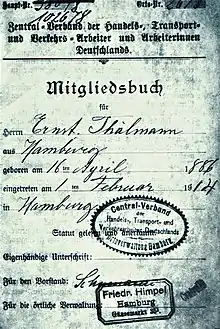 Haupt-Nr.
Orts-Nr.
102678
Zentral-Verband der Handels-, Transport-
und Verkehrs-Arbeiter und Arbeiterinnen
Deutschlands.
Mitgliedsbuch
für
Herrn Ernst Thälmann
aus Hamburg
geboren am 16ten April 1886
eingetreten am 1ten Februar 1904
in Hamburg
Central-Verband
der
Handels-, Transport- und
Verkehrsarbeiter Deutschlands
Ortsverwaltung Hamburg
Statut gelesen und anerkannt
Eigenhändige Unterschrift:
Für den Vorstand:
Für die örtliche Verwaltung:
Friedr. Himpel
Hamburg
Gänsemarkt